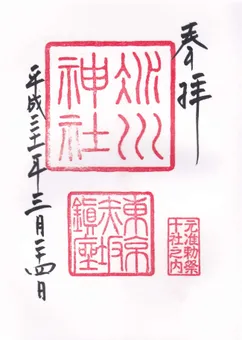 奉拝
氷川
神社
元准勅祭
十社之内
東京
赤坂
鎮座
平成三十一年三月二十四日